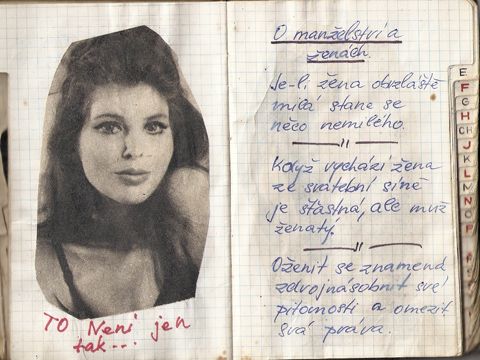 TO Není jen
tak...
O manželství a
ženách.
Je-li žena obzvláště
milá stane se
něco nemilého.
Když vychází žena
ze svatební síně
je šťastná, ale muž
ženatý.
Oženit se znamená
zdvojnásobnit své
pitomosti a omezit
svá práva.
E
F
G
H
CH
J
K
L
M
N
O
P